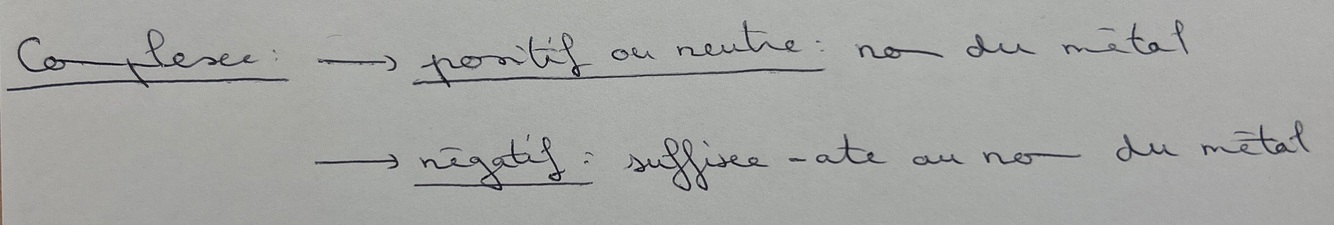 Complexe : → positif ou neutre : nom du métal
→ négatif : suffixe -ate au nom du métal